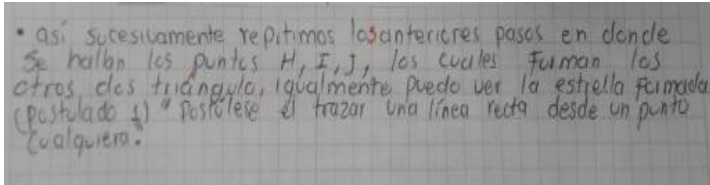 • así sucesivamente repitimos los anteriores pasos en donde
se hallan los puntos H, I, J, los cuales forman los
otros dos triángulo, igualmente puedo ver la estrella formada
(postulado 1) " Postúlese el trazar una línea recta desde un punto
cualquiera.